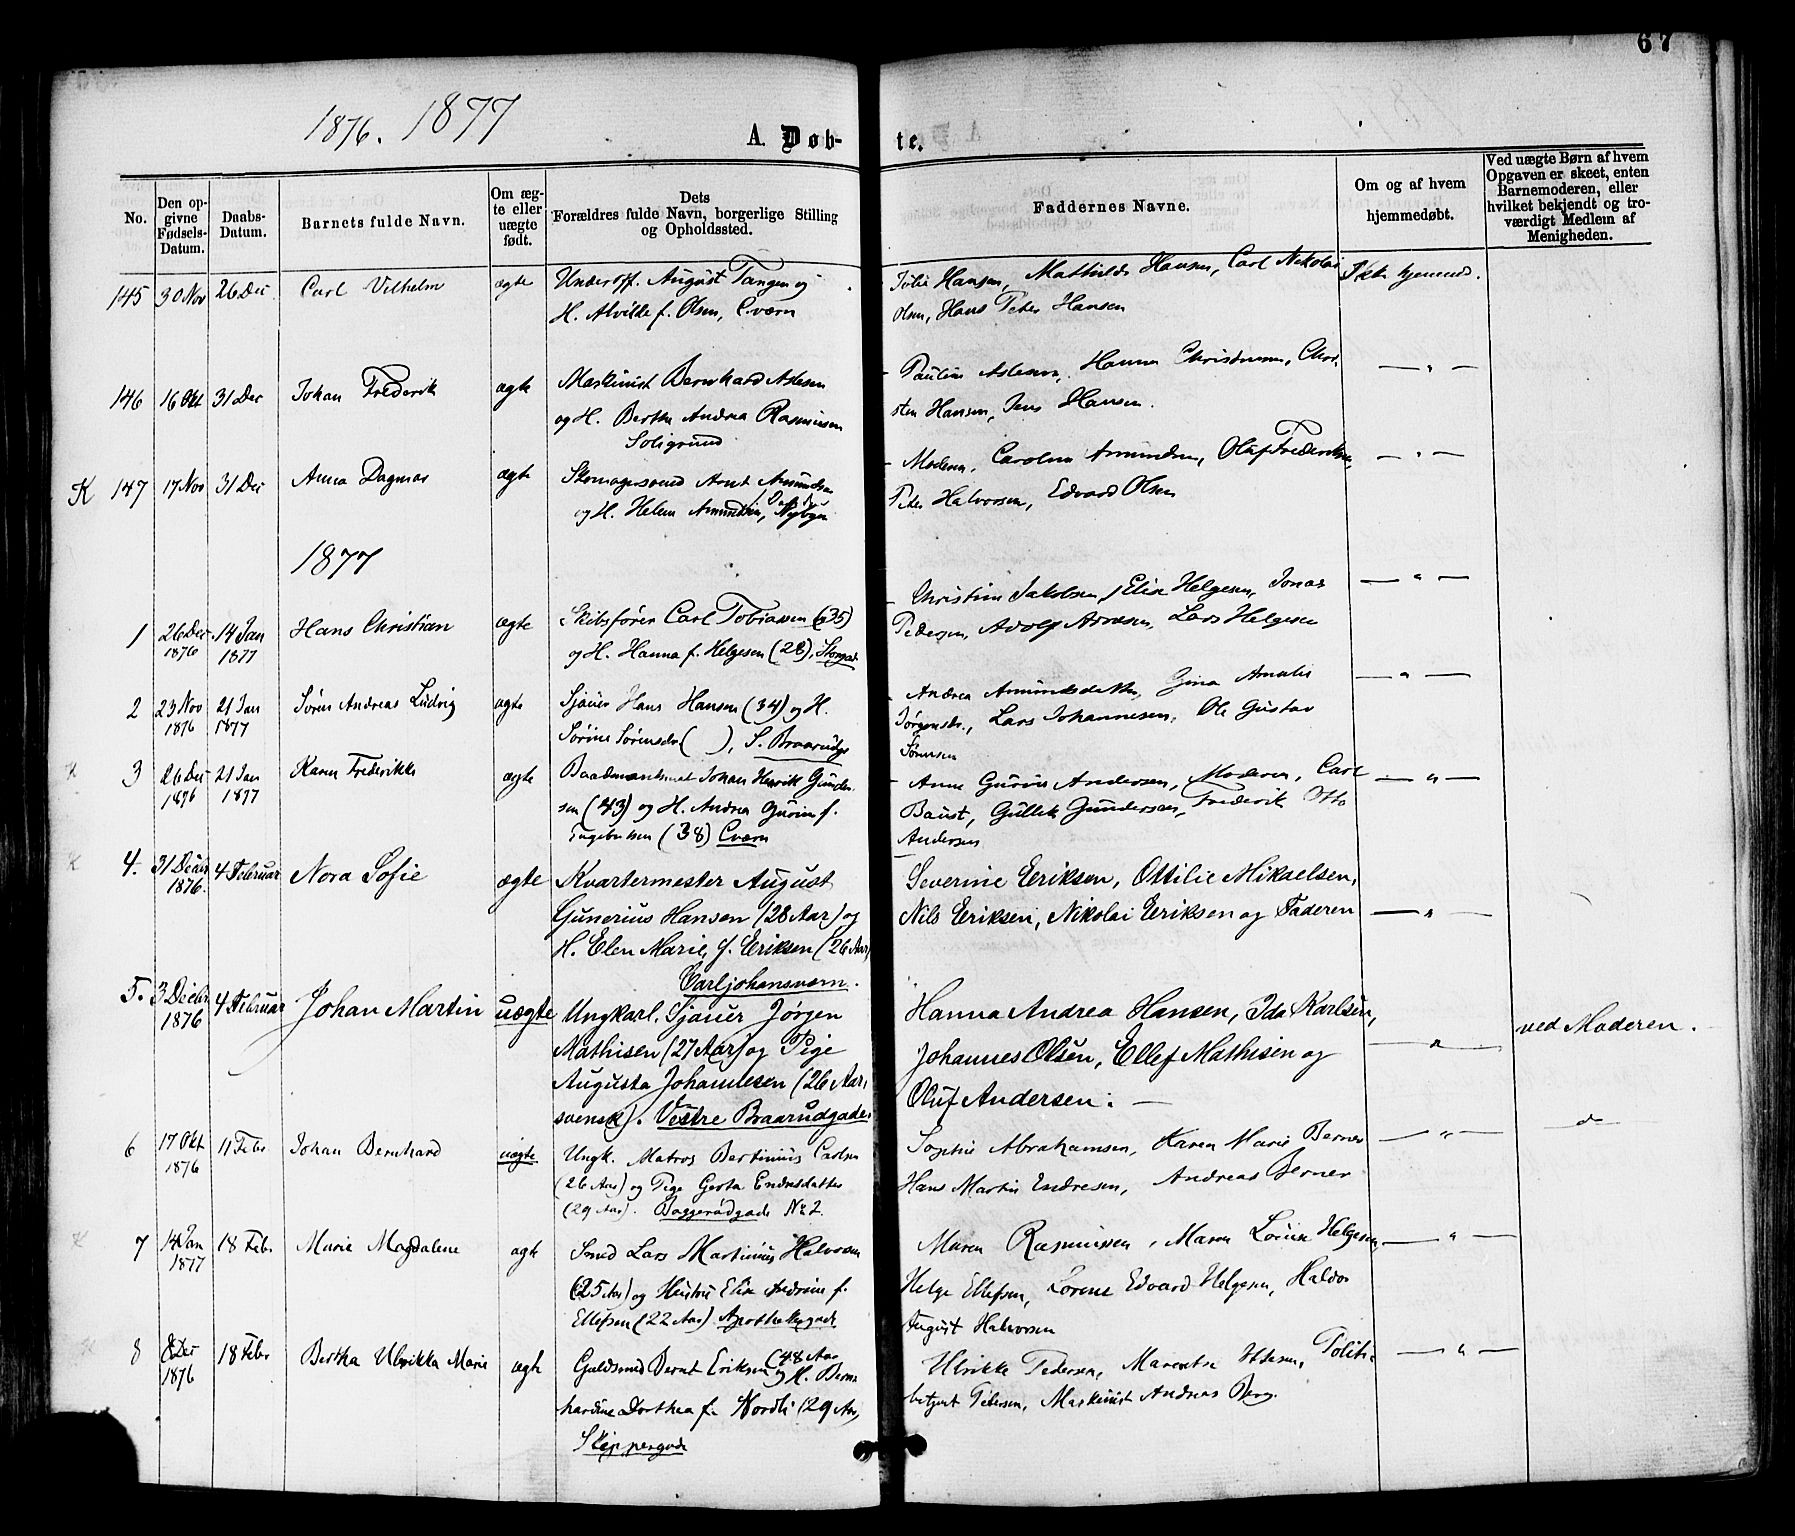 67
1876. 1877
A. Døb-
te.
No.
Den op-
givne
Fødsels-
Datum.
Daabs-
Datum.
Barnets fulde Navn.
Om æg-
te eller
uægte
født.
Dets
Forældres fulde Navn, borgerlige Stilling
og Opholdssted.
Faddernes Navne.
Om og af hvem
hjemmedøbt.
Ved uægte Børn af hvem
Opgaven er skeet, enten
Barnemoderen, eller
hvilket bekjendt og tro-
værdigt Medlem af
Menigheden.
145 30 Nov 26 Dec Carl Vilhelm ægte Underoff. August Tangen og
H. Alvilde f. Olsen, C.værn
Julie Hansen, Mathilde Hansen, Carl Nikolai
Olsen, Hans Peter Hansen
Ikke hjemmed.
146 16 Okt 31 Dec Johan Frederik ægte Maskinist Bernhard Aslesen
og H. Berthe Andrea Rasmussen
Soligrund
Pauline Aslesen, Hanna Christensen, Chri-
sten Hansen, Jens Hansen.
— " —
K 147 17 Nov 31 Dec Anna Dagmar ægte Skomagersvend Arnt Amundsen
og H. Helene Amundsen, Nybyen
Moderen, Caroline Amundsen, Oluf Frederiksen,
Peter Halvorsen, Edvard Olsen
— " —
1877
1 26 Dec 1876 14 Jan 1877 Hans Christian ægte Skibsfører Carl Tobiassen (35)
og H. Hanna f. Helgesen (28), Storgade
Christine Jakobsen, Elise Helgesen, Jonas
Pedersen, Adolf Arnesen, Lars Helgesen
— " —
2 23 Nov 1876 21 Jan 1877 Søren Andreas Ludvig ægte Sjøuer Hans Hansen (34) og H.
Sørine Sørensdr ( ), S. Braarudgs
Andrea Amundsdatter, Gina Amalie
Jørgensdr., Lars Johannesen, Ole Gustav
Sørensen
— " —
K 3 26 Dec 1876 21 Jan 1877 Karen Frederikke ægte Baadsmandsmat Johan Henrik Gunder-
sen (43) og H. Andrea Gurine f.
Engebretsen (38) C.værn
Anne Gurine Andersen, Moderen, Carl
Baust, Gullik Gundersen, Frederik Otto
Andersen
— " —
K 4. 31 Decbr 1876. 4 Februar Nora Sofie ægte Kvartermester August
Gunerius Hansen (28 Aar) og
H. Elen Marie, f. Eriksen (26 Aar)
Carljohansværn.
Severine Eriksen, Ottilie Mikselsen,
Nils Eriksen, Nikolai Eriksen og Faderen
— " —
5. 3 Decbr 1876 4 Februar Johan Martin uægte Ungkarl, Sjøuer Jørgen
Mathisen (27 Aar) og Pige
Augusta Johannesen (26 Aar,
svensk). Vestre Braarudgade.
Hanna Andrea Hansen, Ida Karlsen,
Johannes Olsen, Ellef Mathisen og
Oluf Andersen. —
— " —
ved Moderen.
6 17 Okt 1876 11 Febr Johan Bernhard uægte Ungk. Matros Bertinius Carlsen
(26 Aar) og Pige Gerta Endresdatter
(29 Aar). Baggerødgade No 2.
Sophie Abrahamsen, Karen Marie Berner
Hans Martin Endresen, Andreas Berner
— " —
do
K 7 14 Jan 1877 18 Febr Marie Magdalene ægte Smed Lars Martinius Halvorsen
(25 Aar) og Hustru Elise Andrine f.
Ellefsen (22 Aar) Apothekergade
Maren Rasmussen, Maren Lovise Helgesen,
Helge Ellefsen, Lorens Edvard Helgesen, Haldor
August Halvorsen
— " —
K 8 8 Dec 1876 18 Febr Bertha Ulrikka Marie ægte Guldsmed Bernt Eriksen (48 Aar)
og H. Bern-
hardine Dorthea f. Nordli (29 Aar,
Skippergade
Ulrikke Pedersen, Marentse Ittesen, Politi-
betjent Pedersen, Maskinist Andreas Berg.
— " —